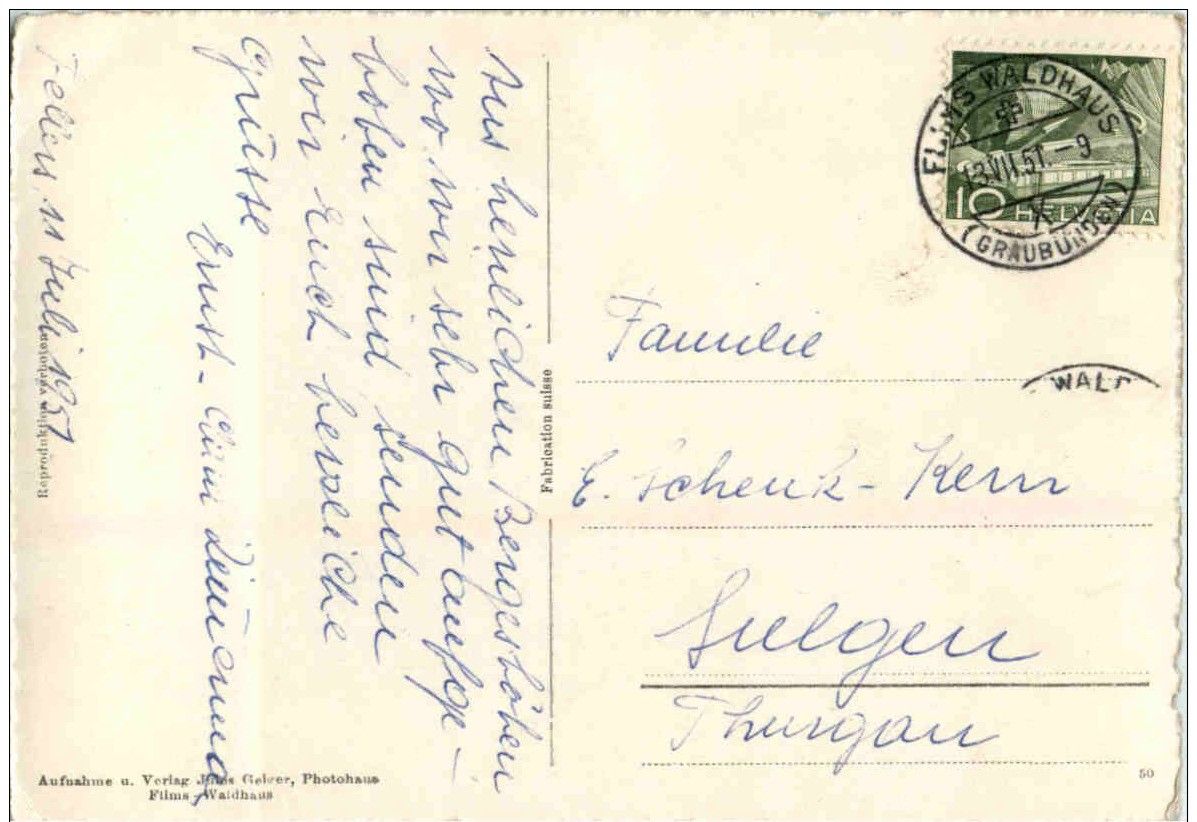 Fellers, 11 Juli 1951
Aus herrlichen Bergeshöhen
wo wir sehr gut aufge-
hoben sind senden
wir Euch herzliche
Grüsse
Ernst -
FLIMS WALDHAUS
13.VII.51.-9
(GRAUBÜNDEN)
10 HELVETIA
WALD
Familie
E. Schenk-Kern
Sulgen
Thurgau
Fabrication suisse
Reproduktion verboten
Aufnahme u. Verlag Jules Geiger, Photohaus
Flims-Waldhaus
50